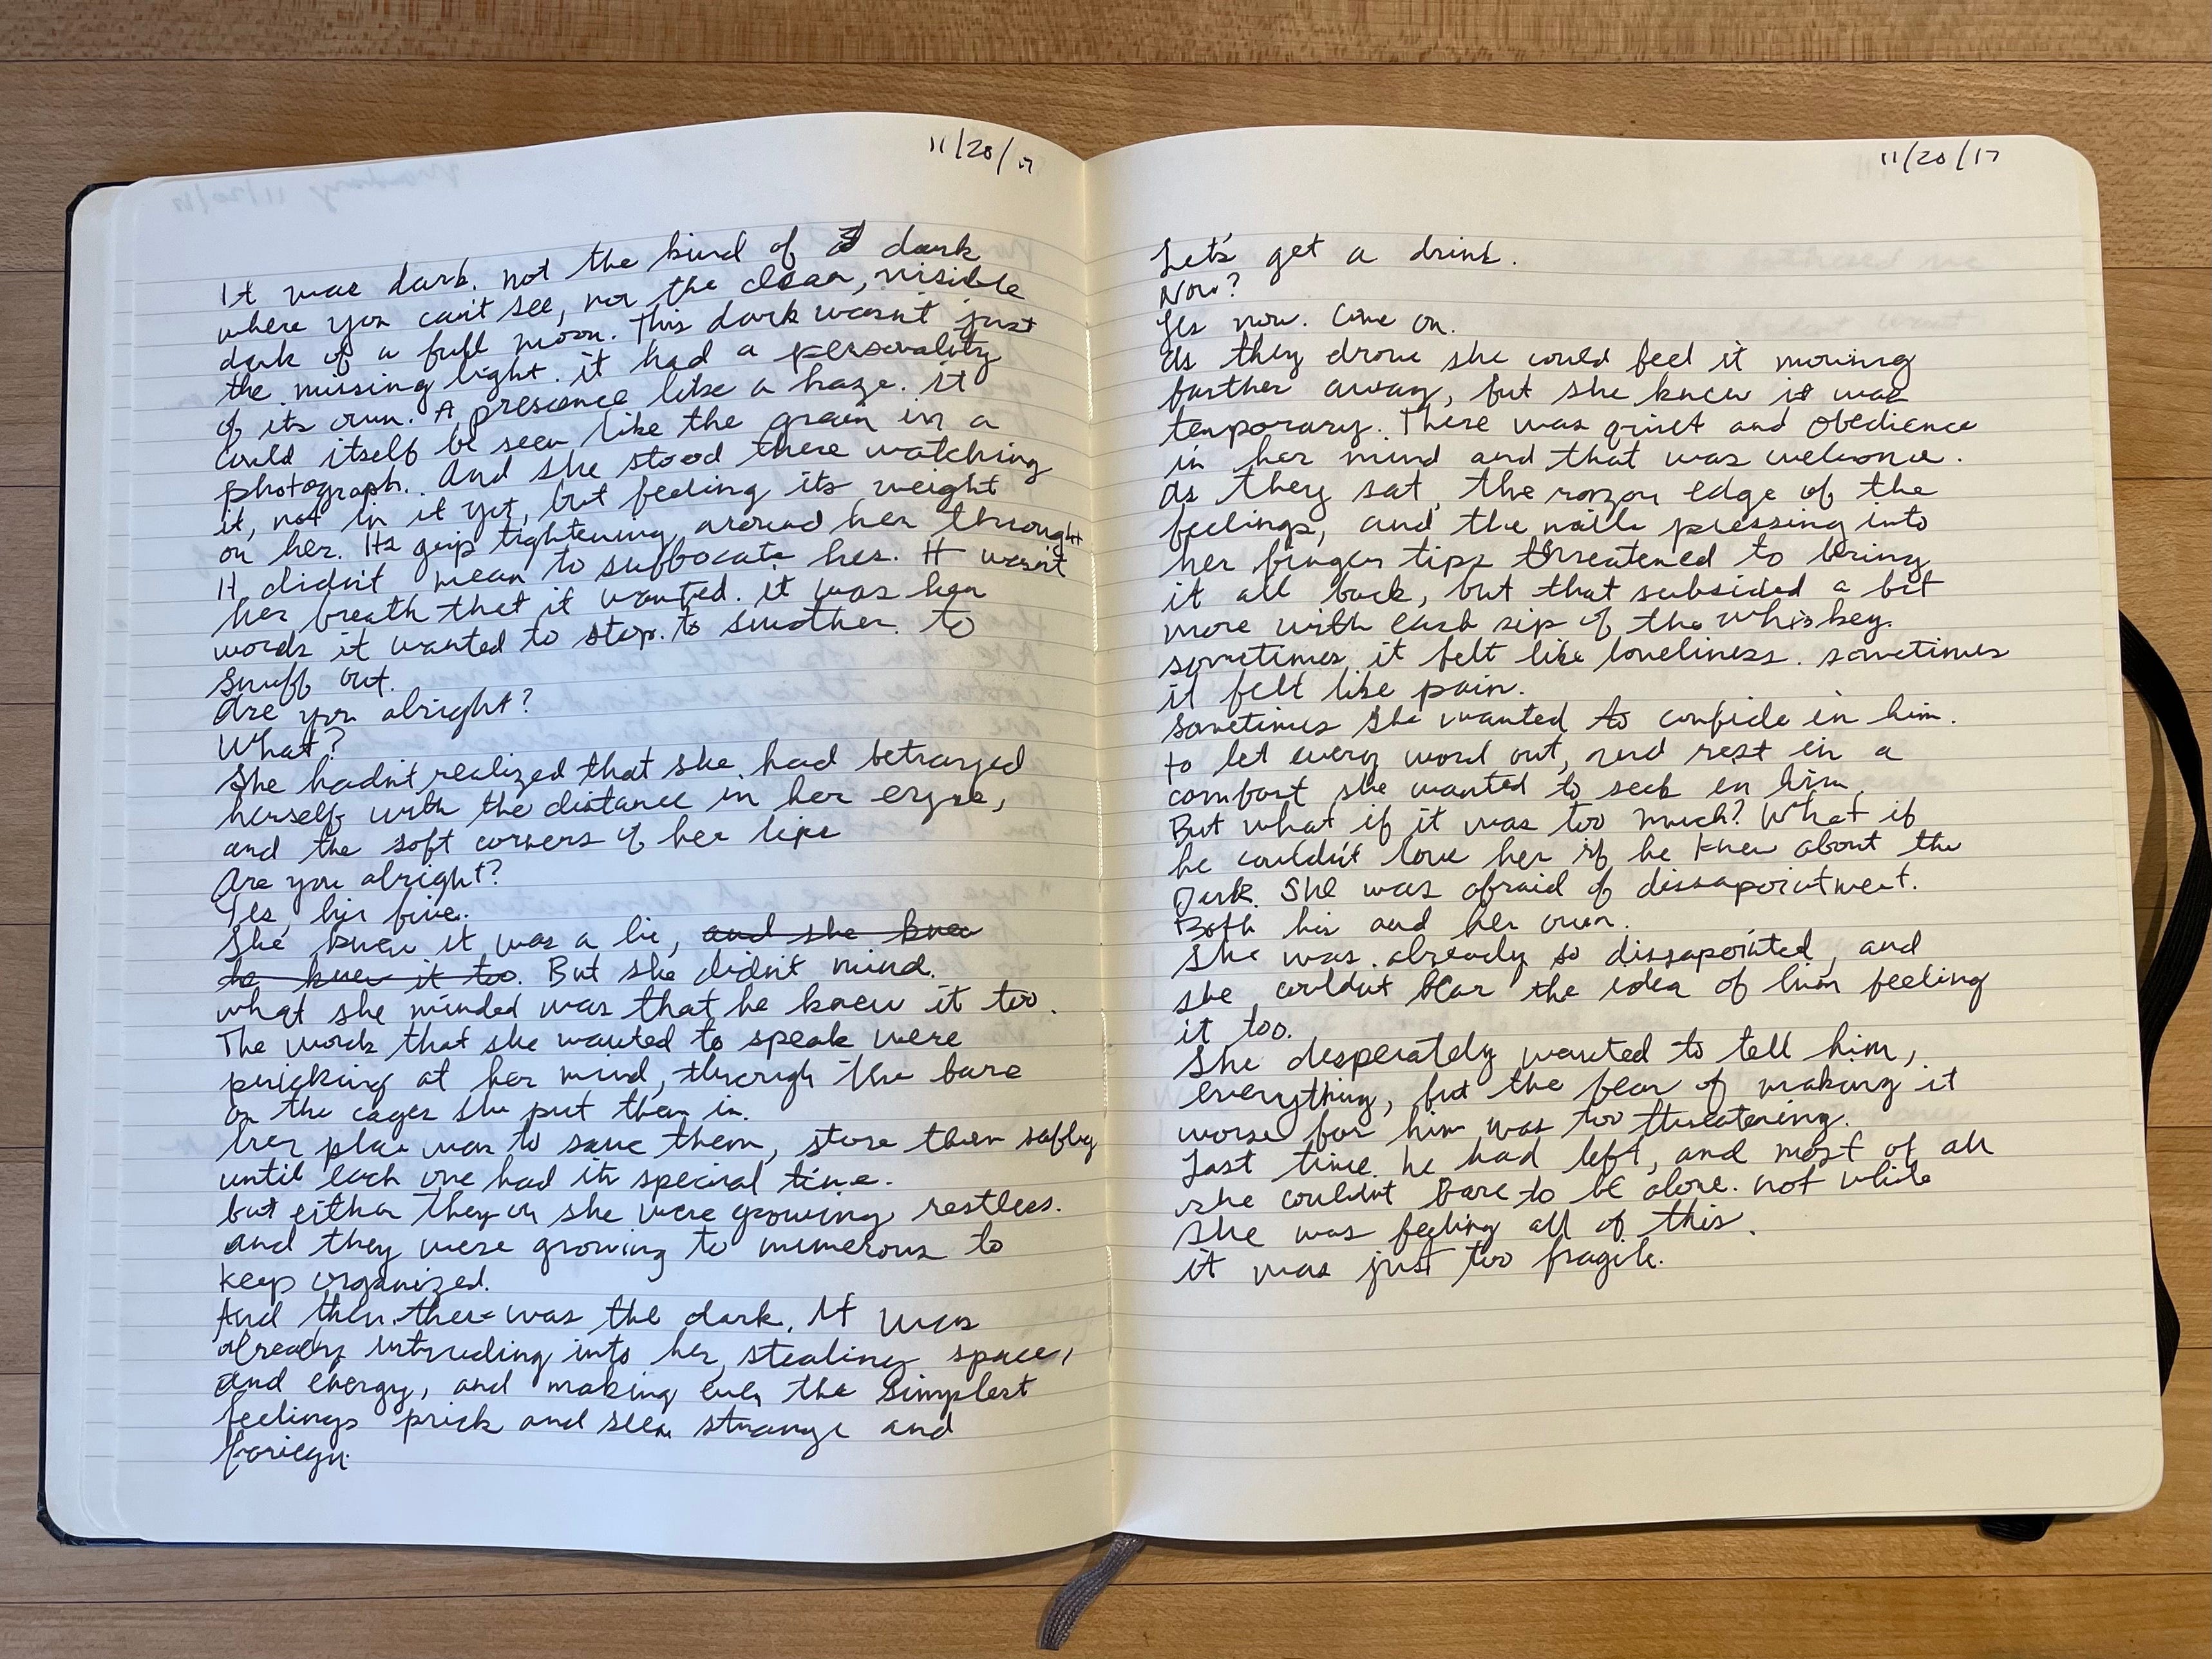 11/20/17
It was dark. not the kind of dark
where you can't see, nor the clear, visible
dark of a full moon. This dark wasn't just
the missing light. it had a personality
of its own. A presence like a haze. it
could itself be seen like the grain in a
photograph. And she stood there watching
it, not in it yet, but feeling its weight
on her. Its grip tightening around her throught
It didn't mean to suffocate her. It wasn't
her breath that it wanted. it was her
words it wanted to stop. to smother. to
snuff out.
Are you alright?
What?
She hadn't realized that she had betrayed
herself with the distance in her eyes,
and the soft corners of her lips
Are you alright?
Yes, I'm fine.
She knew it was a lie, and she knew
he knew it too. But she didn't mind.
what she minded was that he knew it too.
The words that she wanted to speak were
pricking at her mind, through the bars
on the cages she put them in.
her plan was to save them, store them saftly
until each one had its special time.
but either they or she were growing restless.
and they were growing to numerous to
keep organized.
And then there was the dark. It was
already intruding into her, stealing space,
and energy, and making even the simplest
feelings prick and seem strange and
foriegn.
11/20/17
Let's get a drink.
Now?
Yes now. Come on.
As they drove she could feel it moving
farther away, but she knew it was
temporary. There was quiet and obedience
in her mind and that was welcome.
As they sat, the razor edge of the
feelings, and the nails pressing into
her finger tips threatened to bring
it all back, but that subsided a bit
more with each sip of the whiskey.
sometimes it felt like loneliness. sometimes
it felt like pain.
Sometimes she wanted to confide in him.
to let every word out, and rest in a
comfort she wanted to seek in him.
But what if it was too much? What if
he couldn't love her if he knew about the
Dark. She was afraid of dissapointment.
Both his and her own.
She was already so dissapointed, and
she couldnt bear the idea of him feeling
it too.
She desperately wanted to tell him,
everything, but the fear of making it
worse for him was too threatening.
Last time he had left, and most of all
she couldnt bare to be alone. not while
she was feeling all of this.
it was just too fragile.